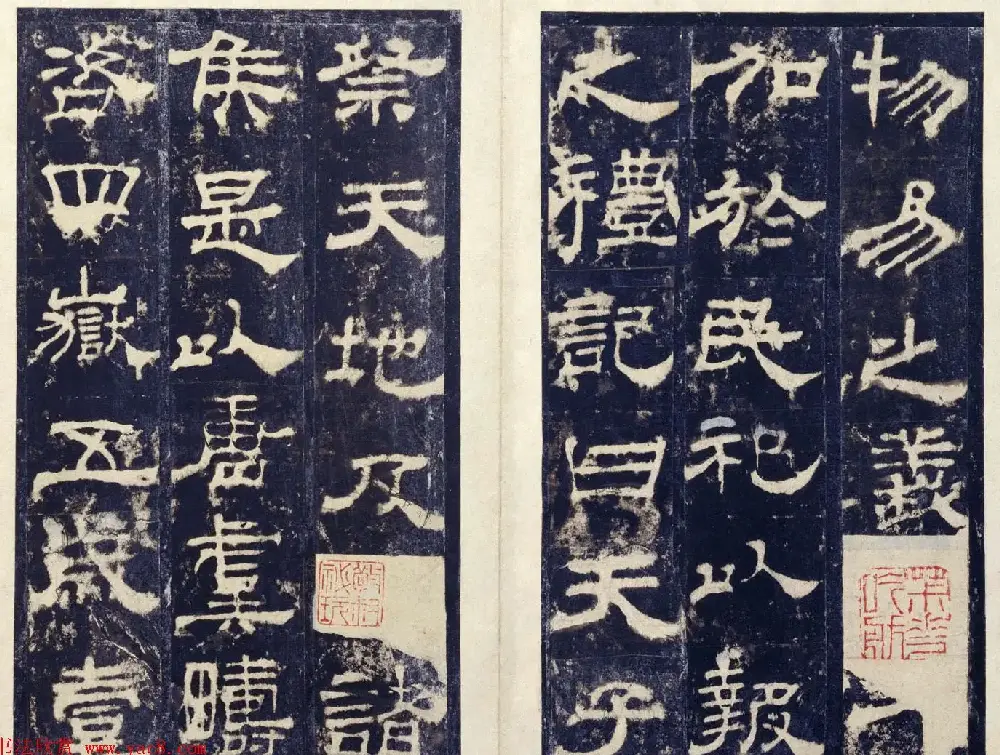 物易之義
加於民祀以報
之禮記曰天子
祭天地及諸
矦是以唐虞疇
咨四嶽五歲壹
书法欣赏 www.yac8.com